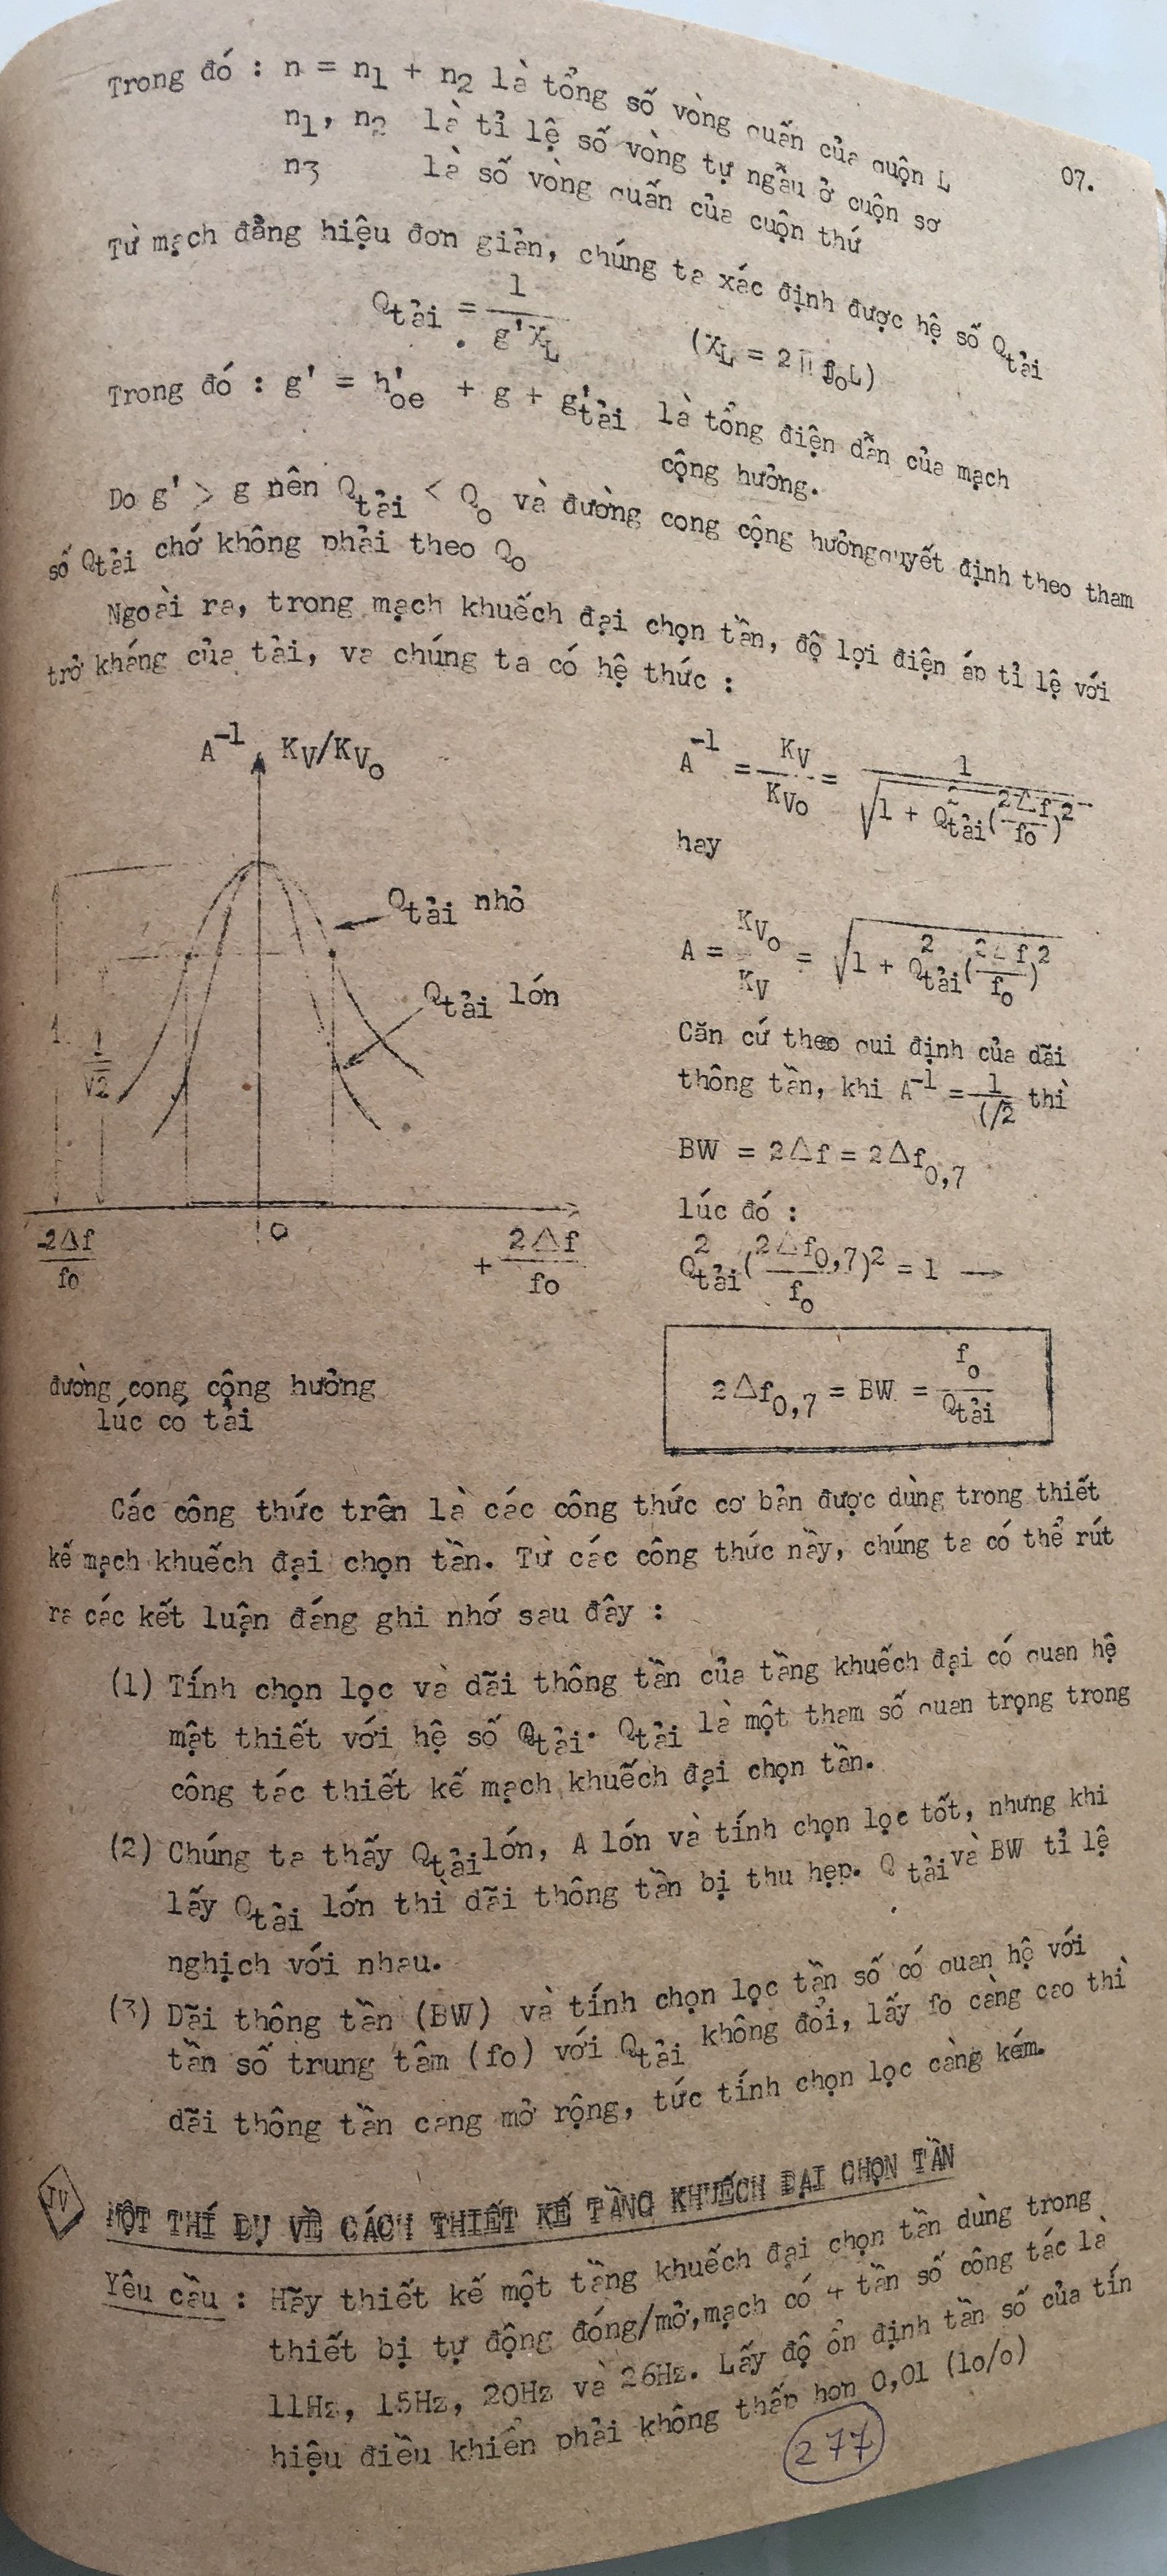 07.
Trong đó : n = n1 + n2 là tổng số vòng quấn của quộn L
n1, n2 là tỉ lệ số vòng tự ngẫu ở cuộn sơ
n3 là số vòng quấn của cuộn thứ
Từ mạch đẳng hiệu đơn giản, chúng ta xác định được hệ số Qtải
Qtải = 1/g'XL (XL = 2πfoL)
Trong đó : g' = h'oe + g + g'tải là tổng điện dẫn của mạch
cộng hưởng.
Do g' > g nên Qtải < Qo và đường cong cộng hưởng quyết định theo tham
số Qtải chớ không phải theo Qo
Ngoài ra, trong mạch khuếch đại chọn tần, độ lợi điện áp tỉ lệ với
trở kháng của tải, va chúng ta có hệ thức :
A⁻¹ KV/KVo
Qtải nhỏ
Qtải lớn
1
1/√2
-2Δf/fo
0
+ 2Δf/fo
đường cong cộng hưởng
lúc có tải
A⁻¹ = KV/KVo = 1/√(1 + Q²tải(2Δf/fo)²)
hay
A = KVo/KV = √(1 + Q²tải(2Δf/fo)²)
Căn cứ theo qui định của dãi
thông tần, khi A⁻¹ = 1/√2 thì
BW = 2Δf = 2Δf0,7
lúc đó :
Q²tải(2Δf0,7/fo)² = 1 →
2Δf0,7 = BW = fo/Qtải
Các công thức trên là các công thức cơ bản được dùng trong thiết
kế mạch khuếch đại chọn tần. Từ các công thức nầy, chúng ta có thể rút
ra các kết luận đáng ghi nhớ sau đây :
(1) Tính chọn lọc và dãi thông tần của tầng khuếch đại có quan hệ
mật thiết với hệ số Qtải. Qtải là một tham số quan trọng trong
công tác thiết kế mạch khuếch đại chọn tần.
(2) Chúng ta thấy Qtải lớn, A lớn và tính chọn lọc tốt, nhưng khi
lấy Qtải lớn thì dãi thông tần bị thu hẹp. Q tải và BW tỉ lệ
nghịch với nhau.
(3) Dãi thông tần (BW) và tính chọn lọc tần số có quan hệ với
tần số trung tâm (fo) với Qtải không đổi, lấy fo càng cao thì
dãi thông tần càng mở rộng, tức tính chọn lọc càng kém.
IV MỘT THÍ DỤ VỀ CÁCH THIẾT KẾ TẦNG KHUẾCH ĐẠI CHỌN TẦN
Yêu cầu : Hãy thiết kế một tầng khuếch đại chọn tần dùng trong
thiết bị tự động đóng/mở, mạch có 4 tần số công tác là
11Hz, 15Hz, 20Hz và 26Hz. Lấy độ ổn định tần số của tín
hiệu điều khiển phải không thấp hơn 0,01 (1o/o)
277